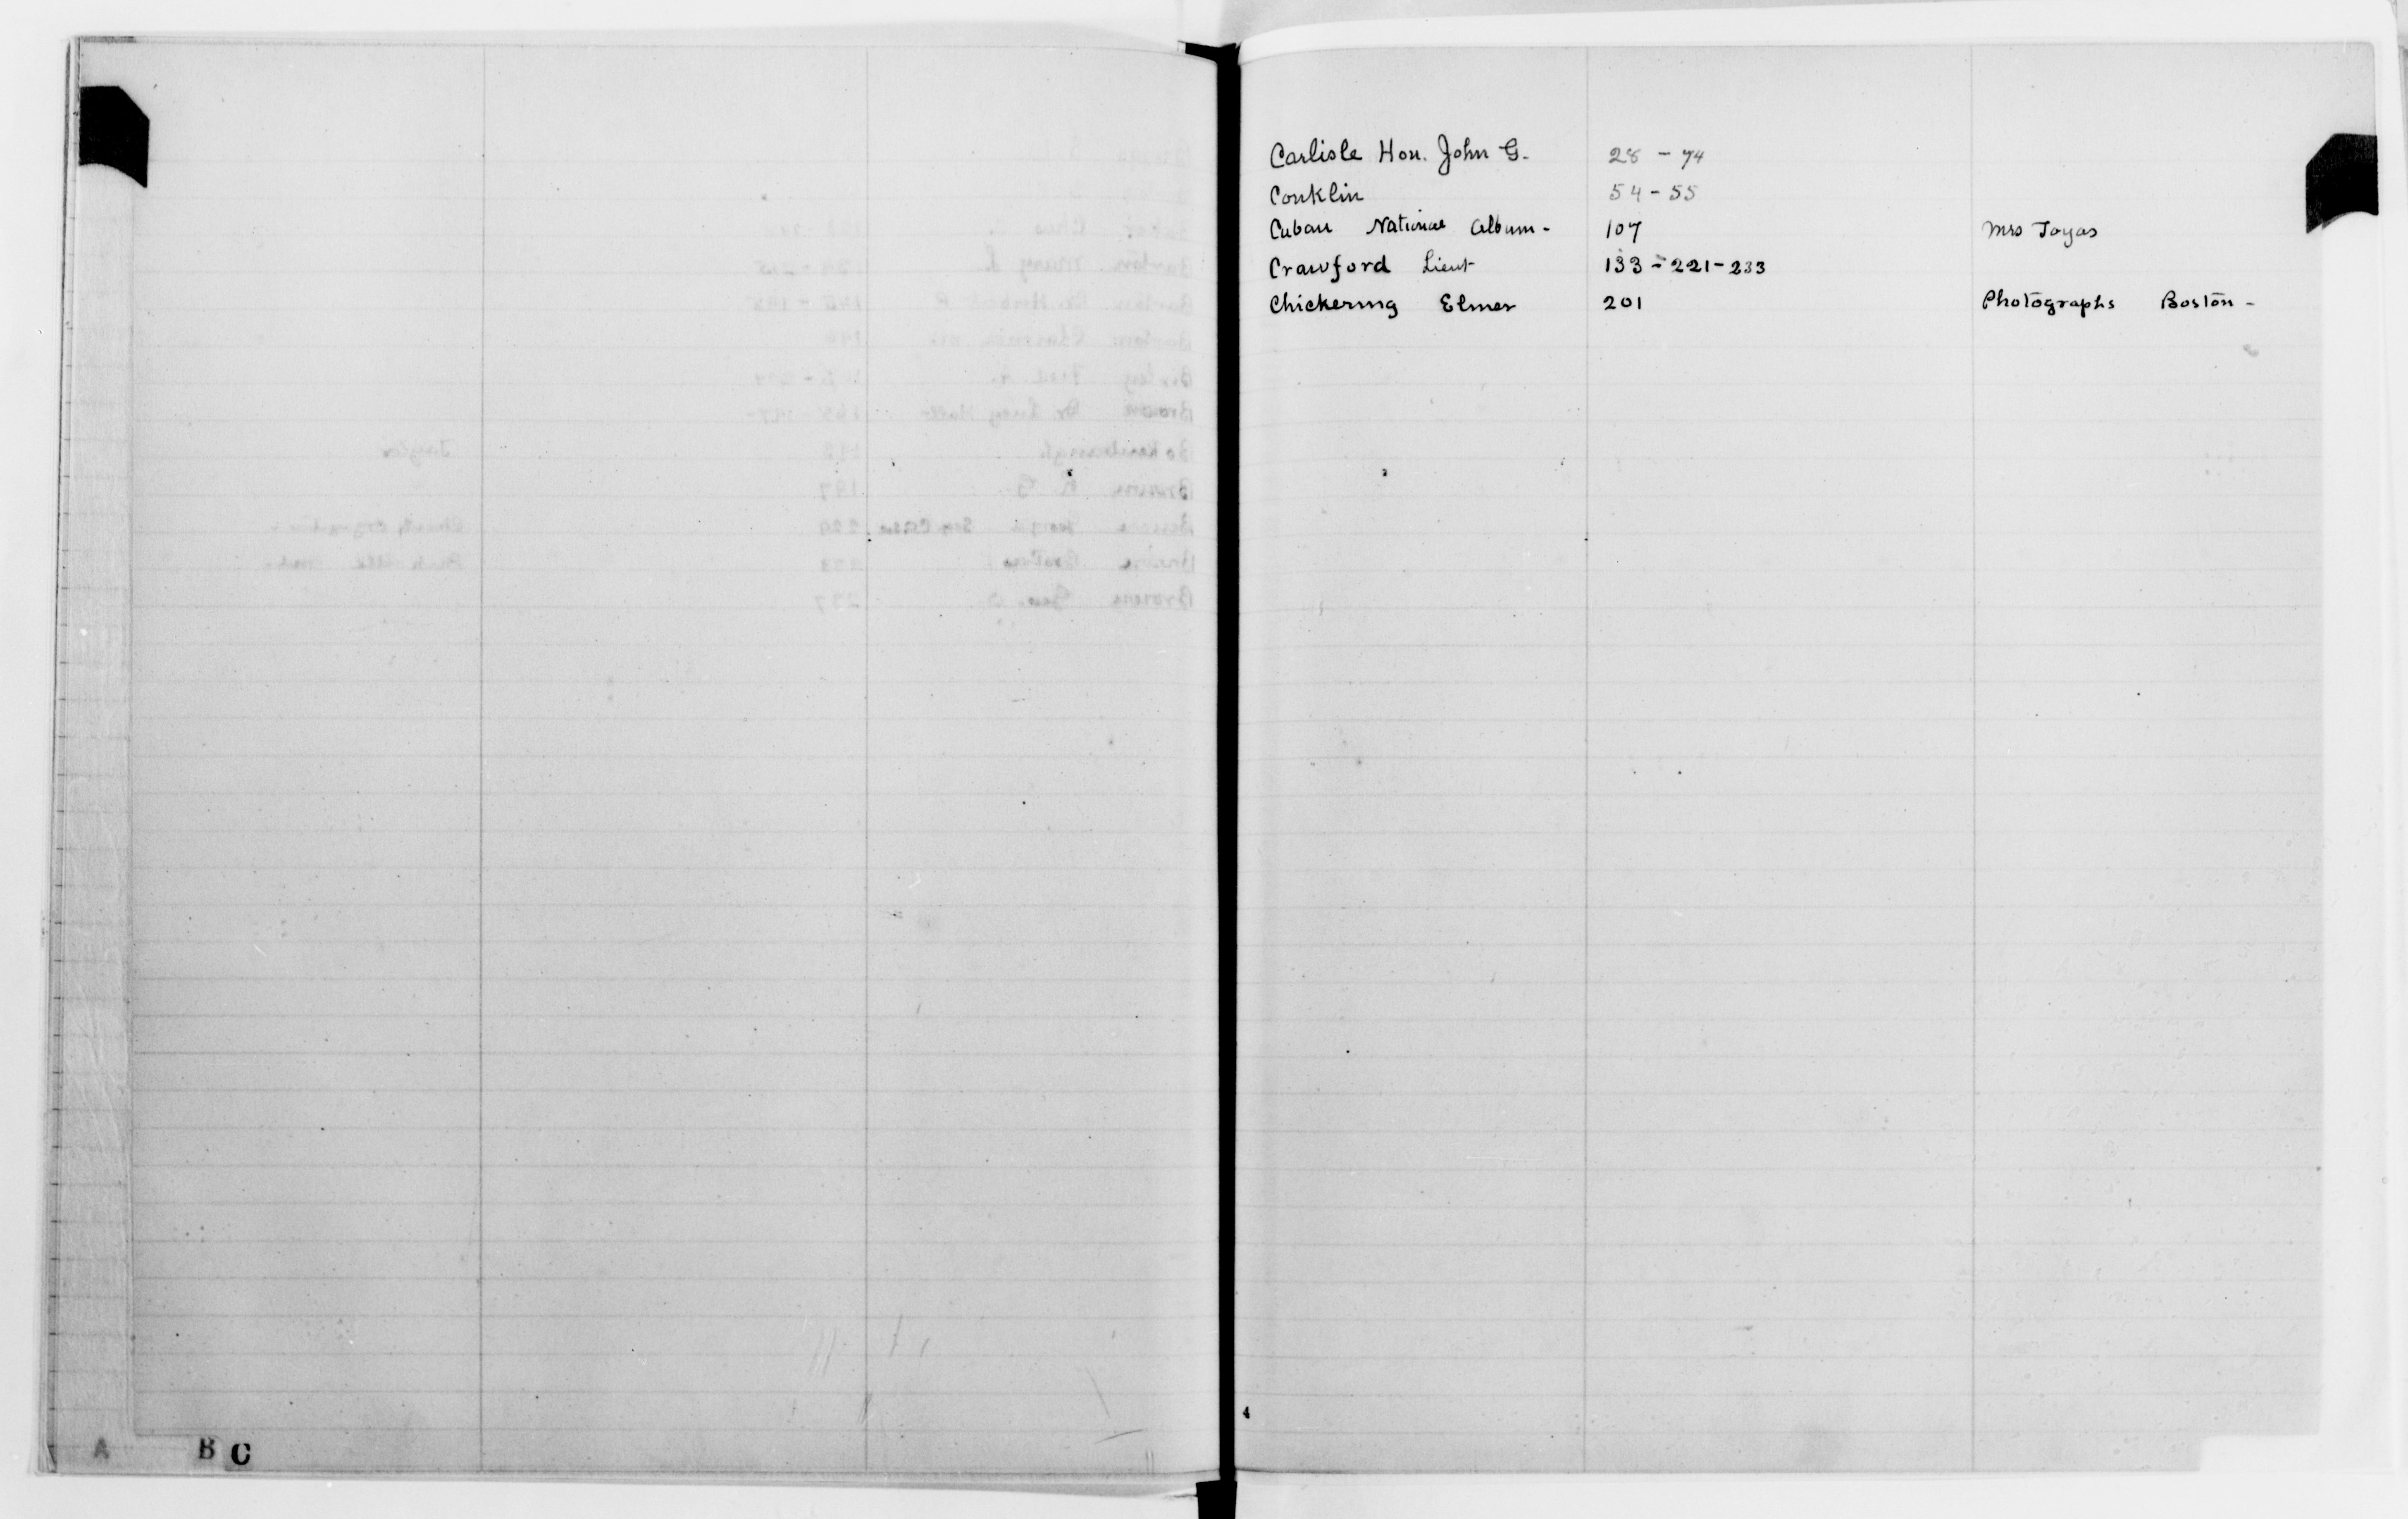 Carlisle Hon. John G. 28 - 74
Conklin 54 - 55
Cuban National Album - 107 Mrs Tayas
Crawford Lieut 133 - 221 - 233
Chickering Elmer 201 Photographs Boston -
A B C